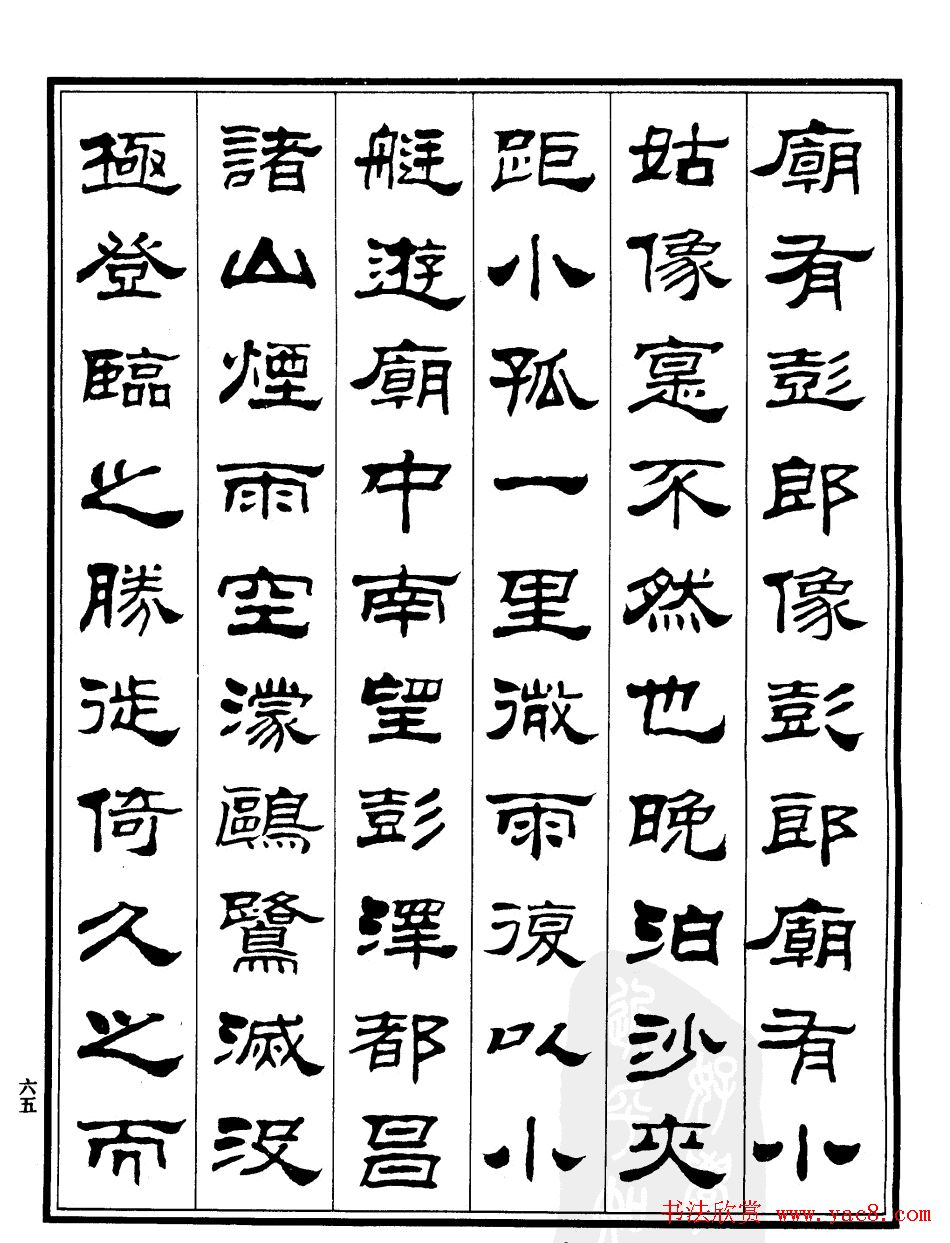 廟有彭郎像彭郎廟有小
姑像寔不然也晚泊沙夾
距小孤一里微雨復以小
艇遊廟中南望彭澤都昌
諸山煙雨空濛鷗鷺滅没
極登臨之勝徙倚久之而
六五
书法欣赏 www.yac8.com